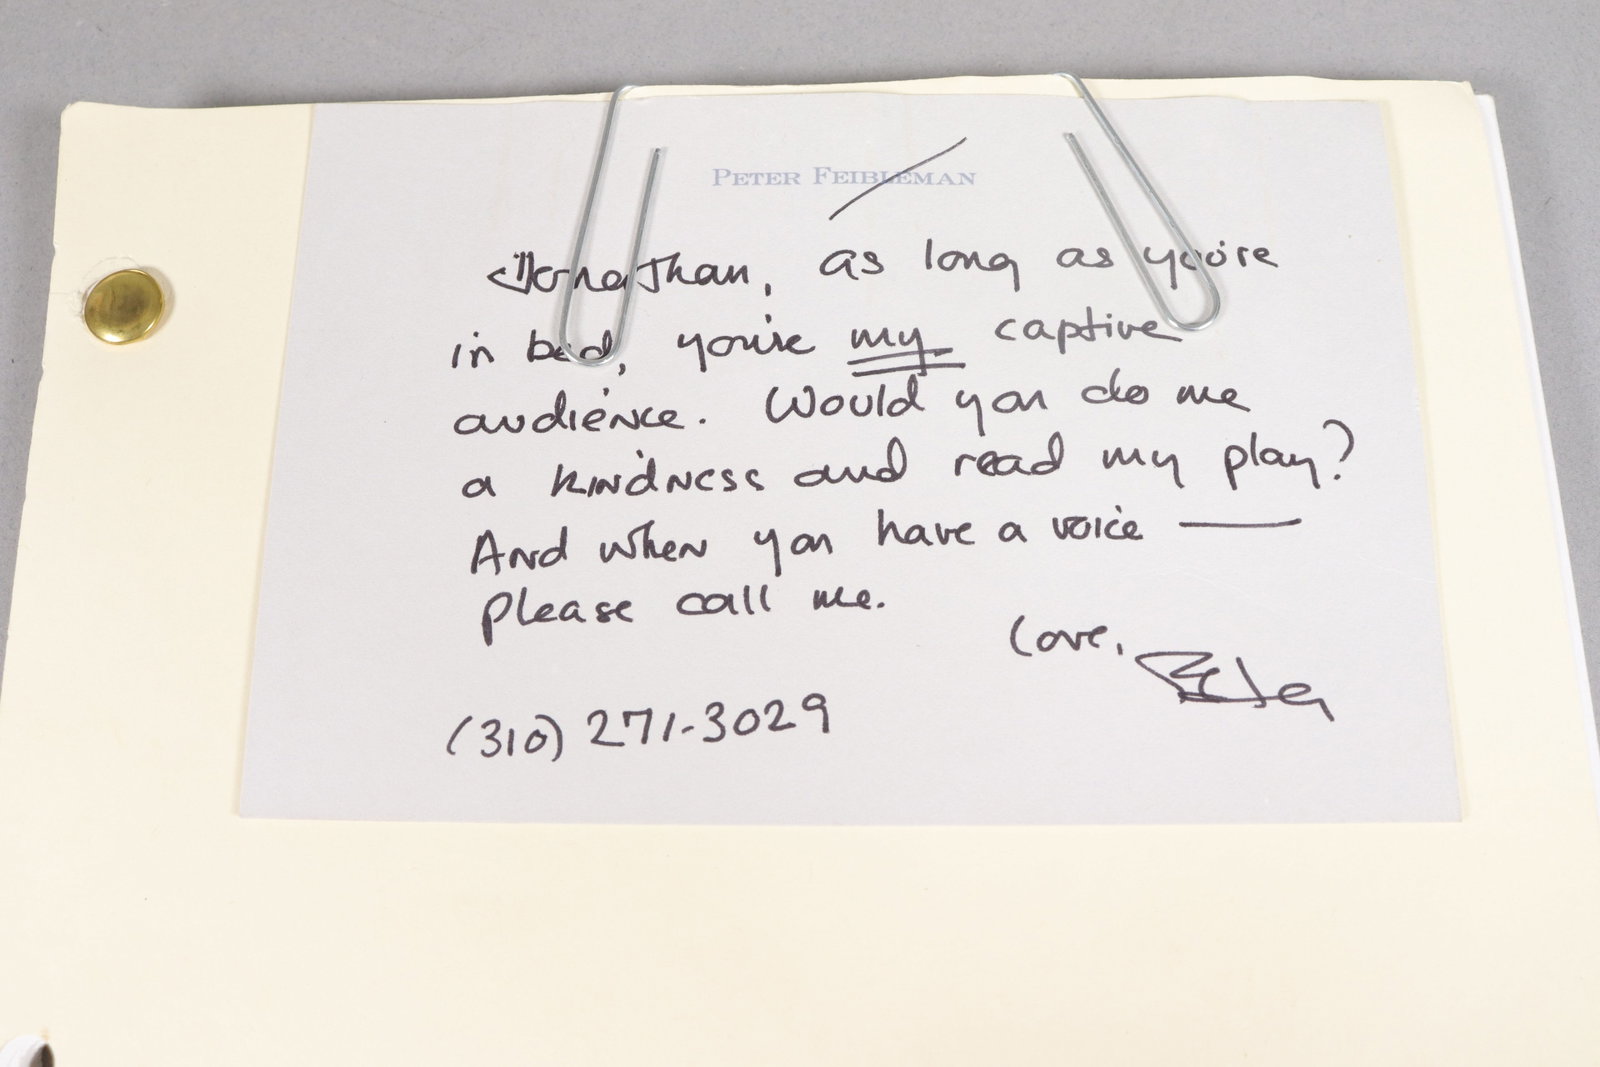 PETER FEIBLEMAN
Jonathan, as long as you're
in bed, you're my captive
audience. Would you do me
a kindness and read my play?
And when you have a voice —
please call me.
Love,
Peter
(310) 271-3029